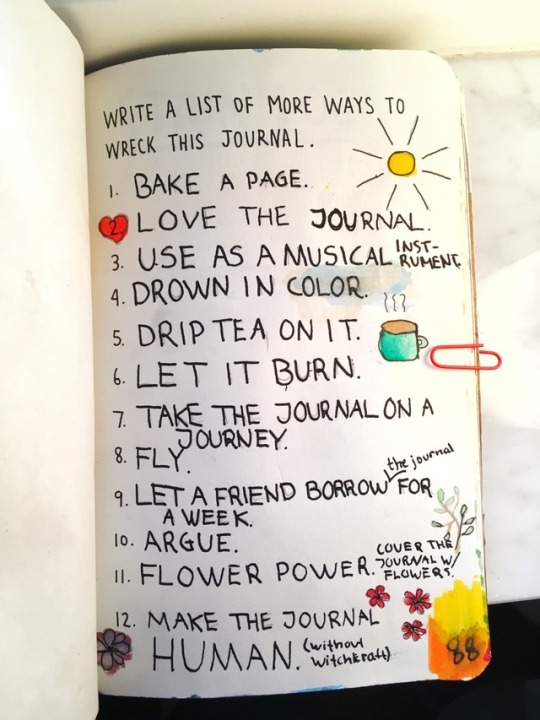 WRITE A LIST OF MORE WAYS TO
WRECK THIS JOURNAL.
1. BAKE A PAGE.
2. LOVE THE JOURNAL.
3. USE AS A MUSICAL INST-
RUMENT.
4. DROWN IN COLOR.
5. DRIP TEA ON IT.
6. LET IT BURN.
7. TAKE THE JOURNAL ON A
JOURNEY.
8. FLY.
9. LET A FRIEND BORROW the journal FOR
A WEEK.
10. ARGUE.
11. FLOWER POWER. COVER THE
JOURNAL W/
FLOWERS.
12. MAKE THE JOURNAL
HUMAN. (without
witchkraft)
88